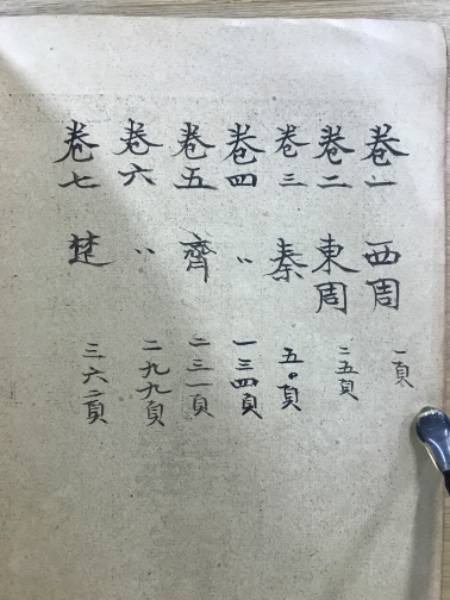 卷一 西周 一頁
卷二 東周 二五頁
卷三 秦 五〇頁
卷四 〃 一三四頁
卷五 齊 二三一頁
卷六 〃 二九九頁
卷七 楚 三六二頁